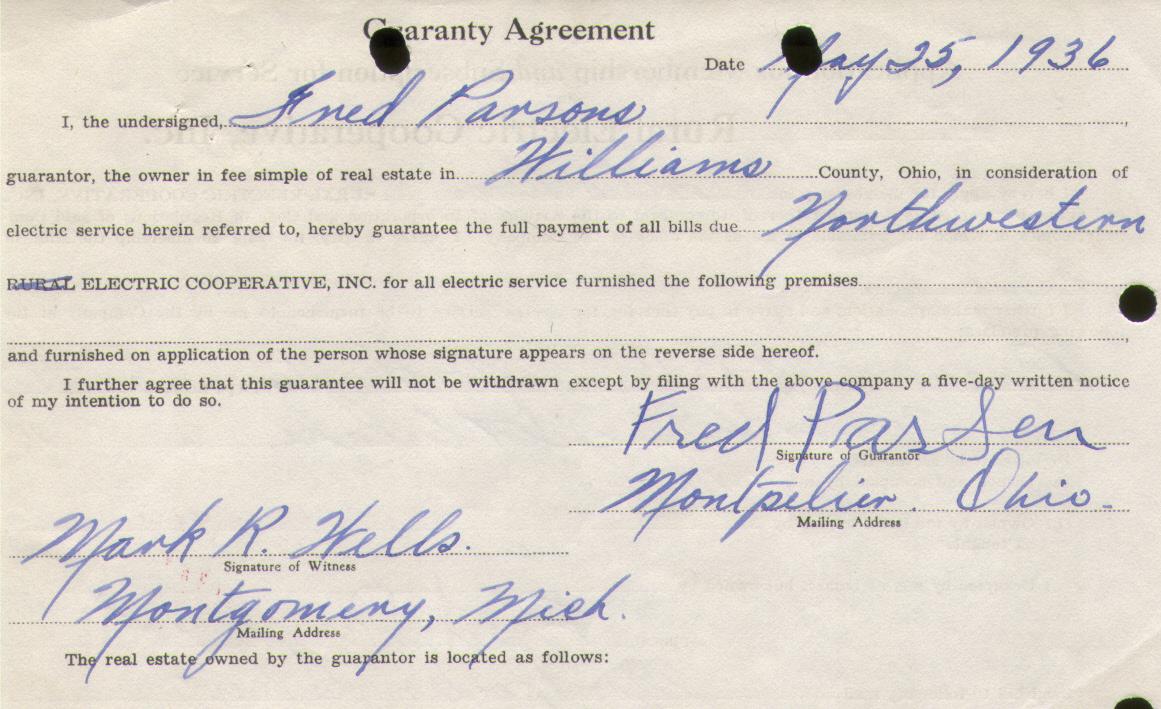 Guaranty Agreement
Date May 25, 1936
I, the undersigned, Fred Parsons,
guarantor, the owner in fee simple of real estate in Williams County, Ohio, in consideration of
electric service herein referred to, hereby guarantee the full payment of all bills due Northwestern
RURAL ELECTRIC COOPERATIVE, INC. for all electric service furnished the following premises
and furnished on application of the person whose signature appears on the reverse side hereof.
I further agree that this guarantee will not be withdrawn except by filing with the above company a five-day written notice
of my intention to do so.
Fred Parsen
Signature of Guarantor
Montpelier. Ohio.
Mailing Address
Mark R. Wells.
Signature of Witness
Montgomery, Mich.
Mailing Address
The real estate owned by the guarantor is located as follows: